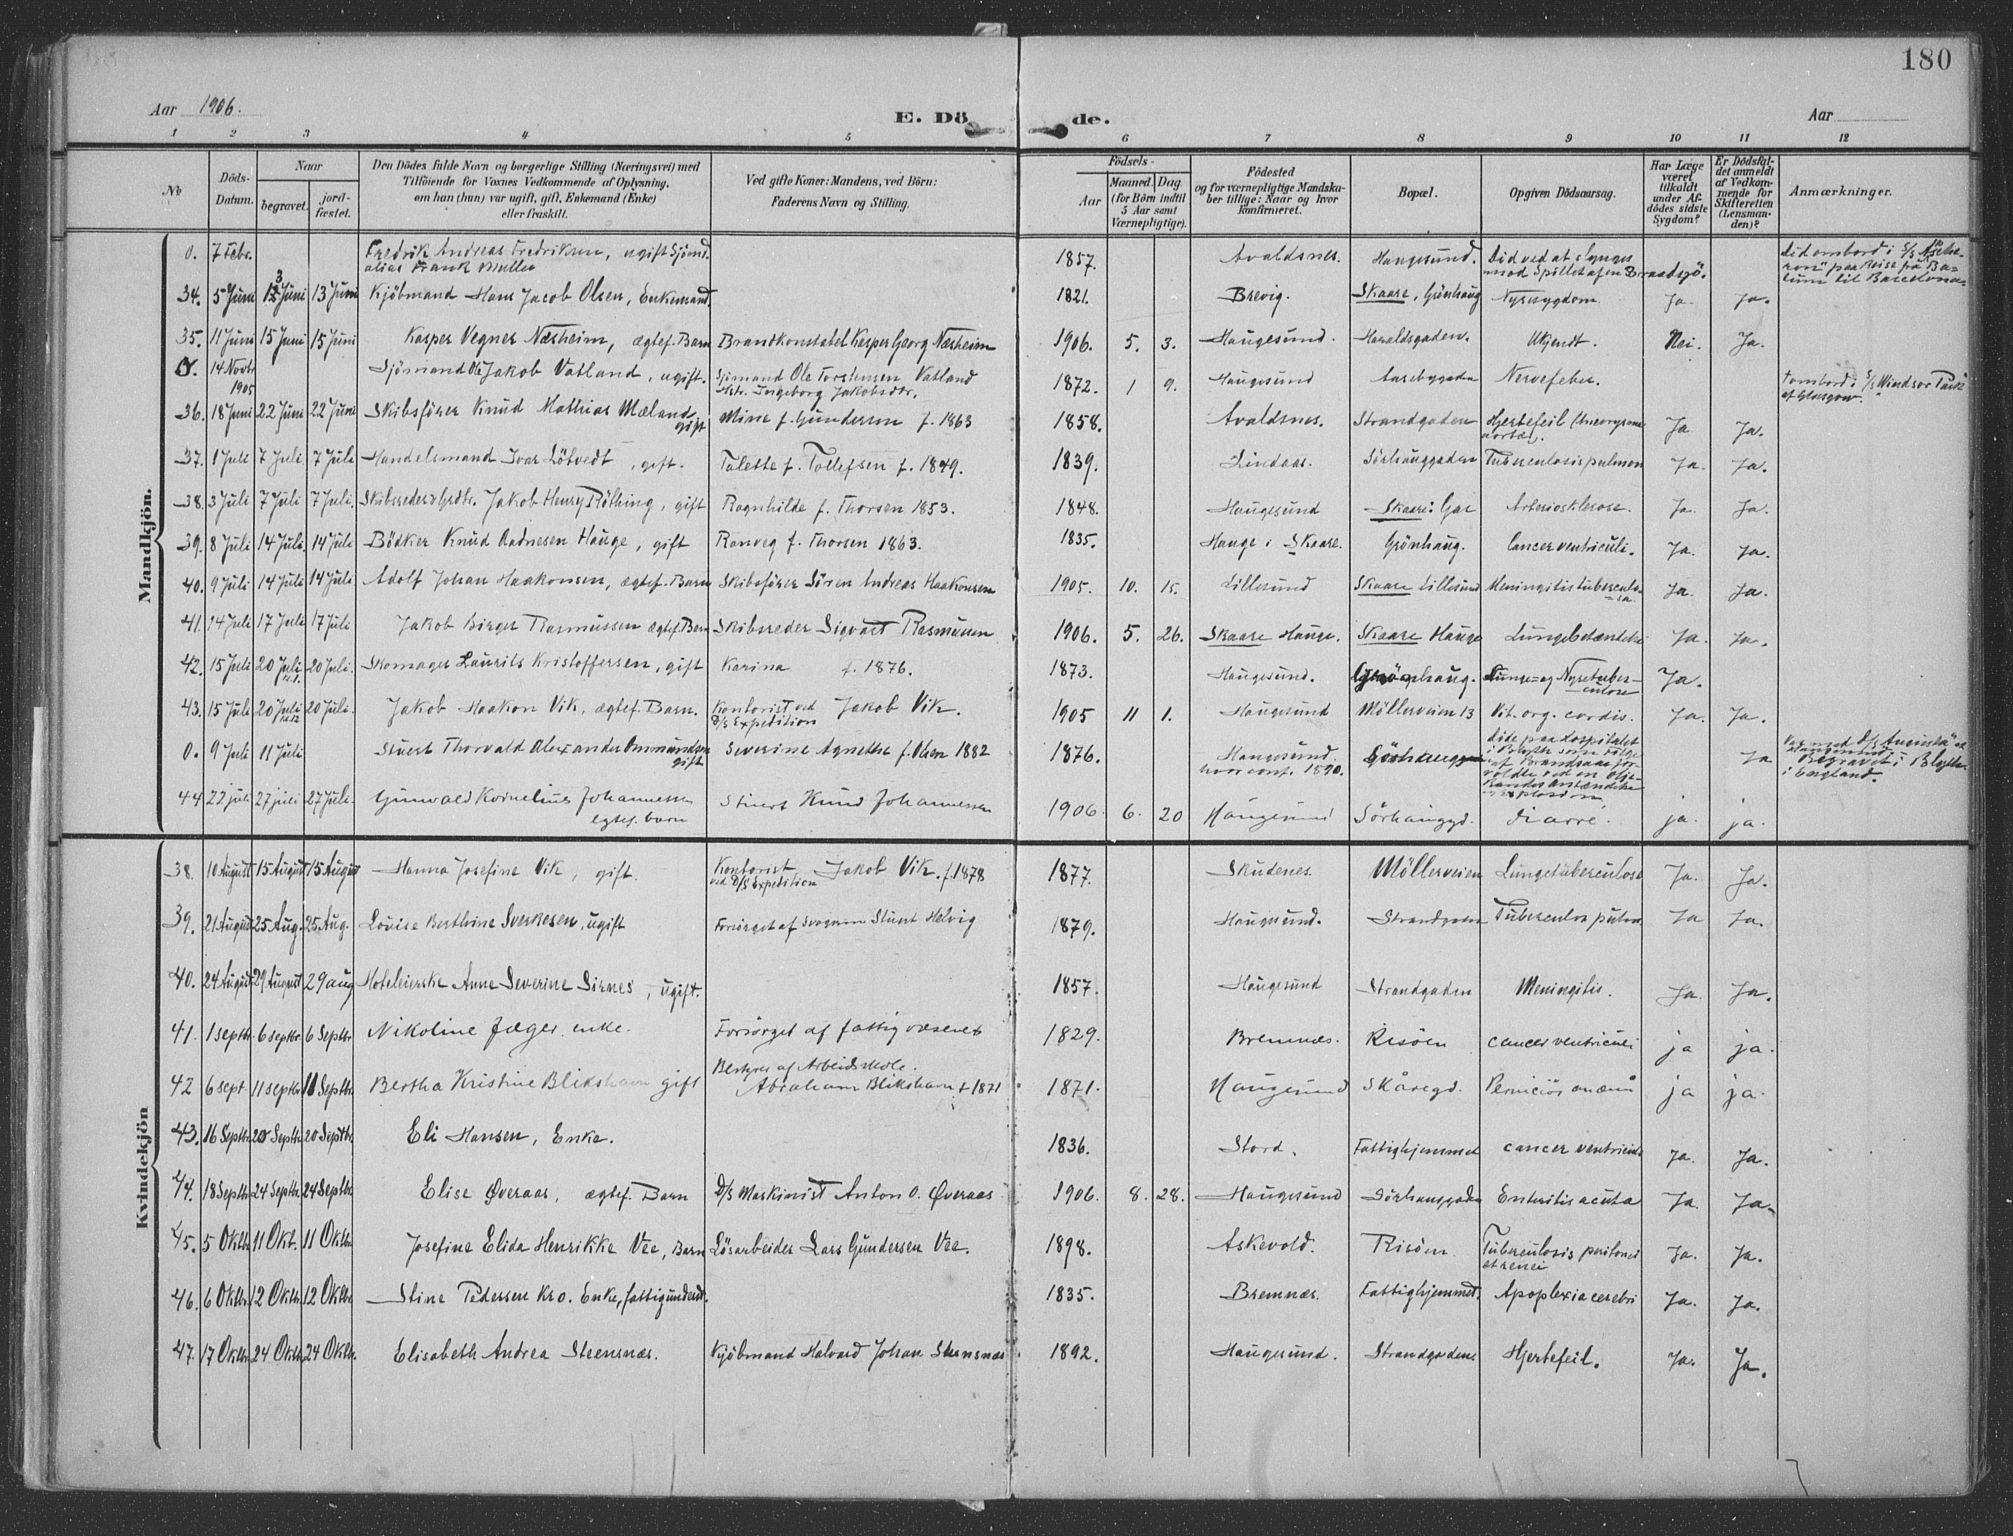 180
Aar 1906.
E. Döde.
Aar
1 2 3 4 5 6 7 8 9 10 11 12
No
Döds-Datum.
Naar
begravet.
jord-fæstet.
Den Dödes fulde Navn og borgerlige Stilling (Næringsvei) med
Tilföiende for Voxnes Vedkommende af Oplysning,
om han (hun) var ugift, gift, Enkemand (Enke)
eller fraskilt.
Ved gifte Koner: Mandens, ved Börn:
Faderens Navn og Stilling.
Födsels-
Aar
Maaned. Dag
(for Börn indtil
5 Aar samt
Værnepligtige).
Födested
og for værnepligtige Mandska-
ber tillige: Naar og hvor
konfirmeret.
Bopæl.
Opgiven Dödsaarsag.
Har Læge
været
tilkaldt
under Af-
dödes sidste
Sygdom?
Er Dödsfal-
det anmeldt
af Vedkom-
mende for
Skifteretten
(Lensman-
den)?
Anmærkninger.
Mandkjön.
0. 7 Febr. Fredrik Andreas Fredriksen, ugift Sjömd. alias Frank Muller 1857. Avaldsnes. Haugesund. Död ved at slynges mod Spillet afen Braadsjö. Död ombord i S/S paa Reise frå Ba- til Barcelona
34. 5 Juni 13 Juni 13 Juni Kjöbmand Hans Jacob Olsen, Enkemand. 1821. Brevig. Skaare, Grönhaug Nyresygdom. Ja. Ja.
35. 11 Juni 15 Juni 15 Juni Kasper Vegner Næsheim, ægtef. Barn Brandkonstabel Kasper Georg Næsheim 1906. 5. 3. Haugesund. Haraldsgaden. Ukjendt. Nei. Ja.
0. 14 Novbr 1905 Sjömand Ole Jakob Vatland, ugift. Sjömand Ole Torstensen Vatland Hstr. Ingeborg Jakobsdtr. 1872. 1 9. Haugesund Aasebygaden Nervefeber. ombord i S/S Windsor Park af Glasgow.
36. 18 Juni 22 Juni 22 Juni Skibsförer Knud Mathias Mæland gift Mine f. Gunderson f. 1863 1858. Avaldsnes. Strandgaden Hjertefeil (Aneurysma aortæ). Ja. Ja.
37. 1 Juli 7 Juli 7 Juli Handelsmand Ivar Lötvedt, gift. Talette f. Tollefsen f. 1849. 1839. Lindaas. Sörhauggaden Tuberculosis pulmon Ja. Ja.
38. 3 Juli 7 Juli 7 Juli. Skibsreder Jakob Henry Röthing, gift Ragnhilde f. Thorsen 1853. 1848. Haugesund Skaare: Gar Arteriosklerose. Ja. Ja.
39. 8 Juli 14 Juli. 14 Juli Bödker Knud Aadnesen Hauge, gift Ranveg f. Thorsen 1863. 1835. Hauge i Skaare. Grönhaug. Cancer ventriculi. Ja. Ja.
40. 9 Juli 14 Juli 14 Juli Adolf Johan Haakonsen, ægtef. Barn Skibsförer Sören Andreas Haakonsen 1905. 10. 15. Lillesund Skaare Lillesund Meningitis tuberculo-sa. Ja. Ja.
41. 14 Juli 17 Juli 17 Juli Jakob Birger Rasmussen ægtef. Barn Skibsreder Sigvart Rasmussen 1906. 5. 26. Skaare Hauge. Skaare Hauge Lungebetændelse Ja. Ja.
42. 15 Juli 20 Juli 20 Juli. Skomager Laurits Kristoffersen, gift Karina f. 1876. 1873. Haugesund. Grönhaug. Lunge- og Nyretuber-culose Ja.
43. 15 Juli 20 Juli 20 Juli. Jakob Haakon Vik, ægtef. Barn. Kontorist ved D/S Expedition Jakob Vik. 1905 11 1. Haugesund Möllerveien 13 Vit. org. cordis. Ja. Ja.
0. 9 Juli 11 Juli Stuert Thorvald Alexander Ommundsen gift Severine Agnethe f. Olsen 1882 1876. Haugesund. conf. 1890. Sörhauggaden döde paa Hospitalet i Blyth som Fölge af Brandsaar for-voldte ved en Olje- explosion Ja begravet i Blyth i England.
44 22 juli 27 juli 27 Juli. Gunvald Kornelius Johannessen egtef. barn Stuert Knud Johannessen 1906 6. 20 Haugesund Sörhauggd. diarré. ja. ja.
Kvindekjön
38. 10 August 15 August 15 August Hanna Josefine Vik, gift. Kontorist ved D/S Expedition Jakob Vik. f. 1878 1877. Skudenes. Möllerveien Lungetuberculose Ja. Ja.
39. 21 August 25 Aug. 25 Aug. Lovise Berthine Sverkesen, ugift Forsörget af Svogeren Stuert Helvig 1879. Haugesund. Strandgaden Tuberculos pulm. Ja Ja.
40. 24 August 29 August 29 aug Hoteleierske Anne Severine Sirnes, ugift. 1857. Haugesund Strandgaden Meningitis. Ja. Ja.
41. 1 septbr. 6 septbr 6 Septbr. Nikoline Jæger enke. Forsörget af fattigvæsenet 1829. Bremnæs. Risöen cancer ventriculi ja ja.
42 6 sept. 11 septbr 11 Septbr. Bertha Kristine Blikshavn gift Bestyrer af Arbeidsskole. Abraham Blikshavn f 1871 1871. Haugesund Skåregd. Perniciös anæmi ja ja.
43. 16 Septbr. 20 Septbr. 20 Septbr. Eli Hansen, Enke. 1836. Stord. Fattighjemmet cancer ventriculi Ja. Ja.
44. 18 Septbr. 24 Septbr. 24 Septbr. Elise Øveraas, ægtef. Barn D/S Maskinist Anton O. Øveraas 1906. 8. 28. Haugesund Sörhauggaden Enteritis acuta Ja. Ja.
45. 5 Oktbr. 11 Okt. 11 Oktbr. Josefine Elida Henrikke Vee, Barn Lösarbeider Lars Gundersen Vee. 1898. Askevold. Risöen. Tuberculosis peritonei et renei Ja. Ja.
46. 6 Oktbr. 12 Oktbr. 12 Oktbr. Stine Pedersen Kro. Enke, fattigunderst. 1835. Bremnæs. Fattighjemmet. Apoplexia cerebri Ja. Ja.
47. 17 Oktbr. 24 Oktbr. 24 Oktbr. Elisabeth Andrea Steensnæs. Kjöbmand Halvard Johan Stensnæs 1892. Haugesund. Strandgaden. Hjertefeil. Ja. Ja.